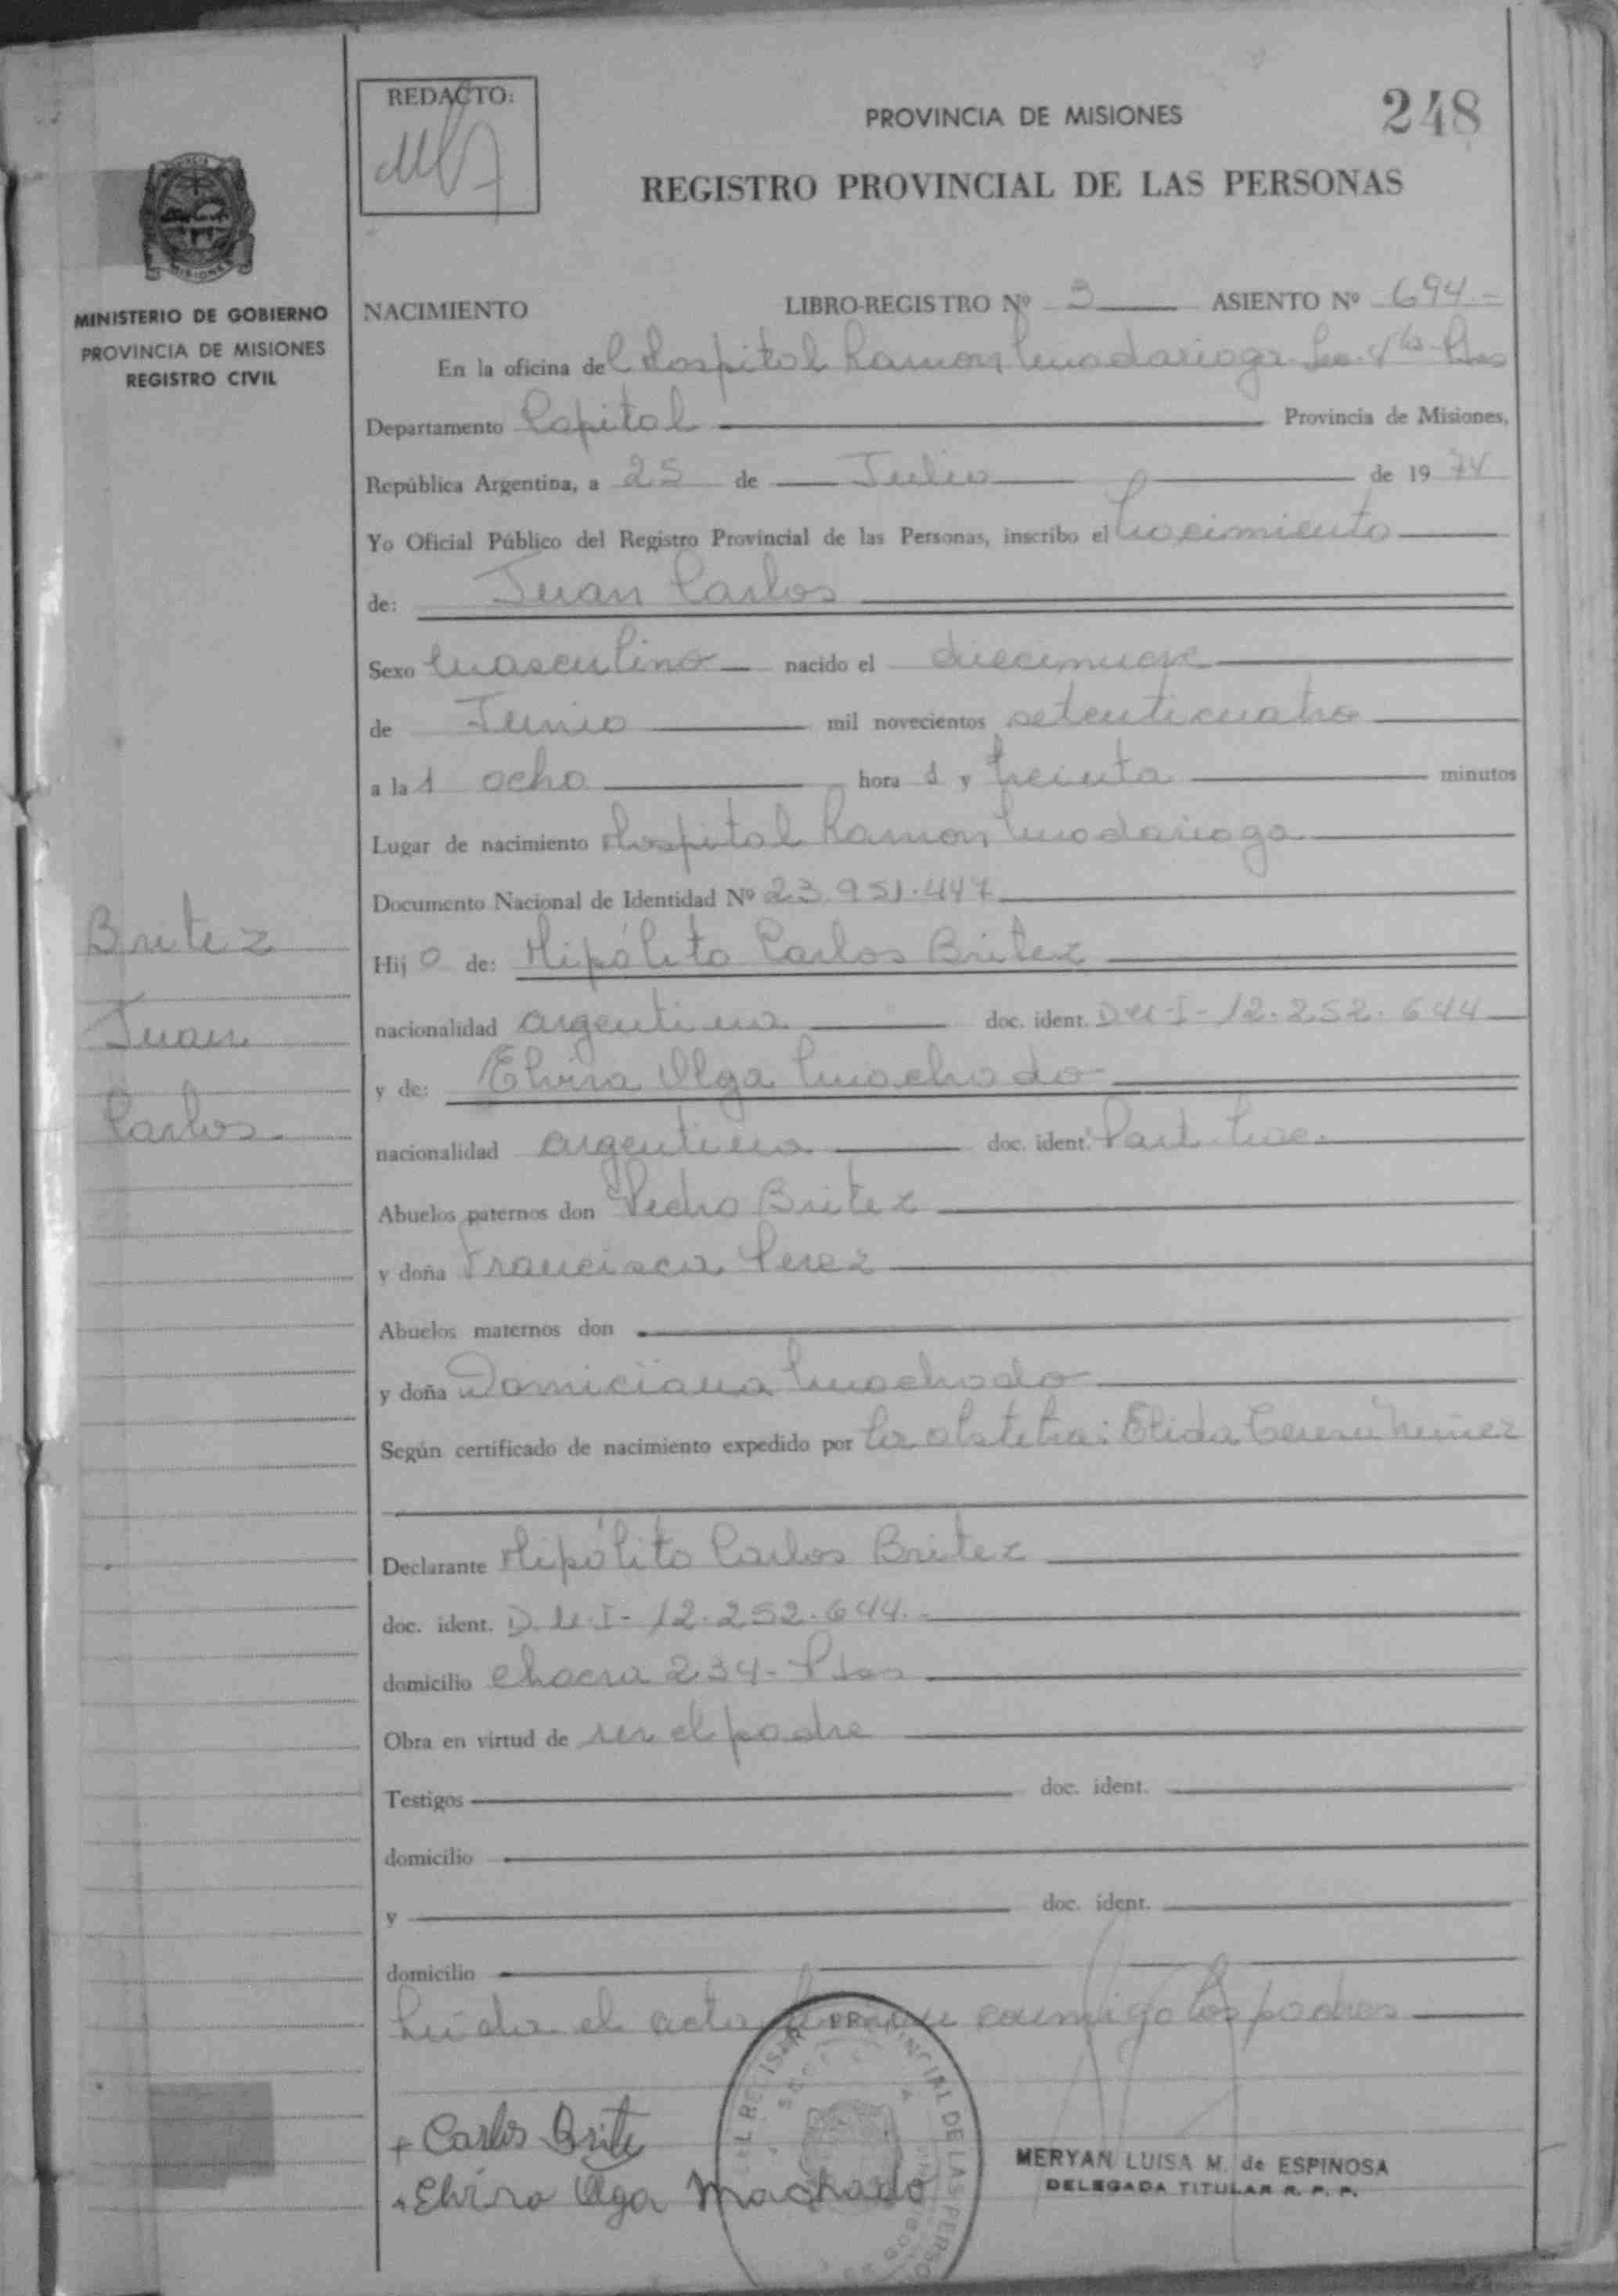 REDACTO:
PROVINCIA DE MISIONES
248
REGISTRO PROVINCIAL DE LAS PERSONAS
MINISTERIO DE GOBIERNO
PROVINCIA DE MISIONES
REGISTRO CIVIL
NACIMIENTO LIBRO-REGISTRO Nº 3 ASIENTO Nº 694.-
En la oficina del Hospital Ramon Madariaga Sec. 4ta Pdas
Departamento Capital Provincia de Misiones,
República Argentina, a 25 de Julio de 1974
Yo Oficial Público del Registro Provincial de las Personas, inscribo el Nacimiento
de: Juan Carlos
Sexo Masculino nacido el diecinueve
de Junio mil novecientos setenticuatro
a las ocho hora s y treinta minutos
Lugar de nacimiento Hospital Ramon Madariaga
Documento Nacional de Identidad Nº 23.951.447
Britez
Juan
Carlos.
Hijo de: Hipólito Carlos Britez
nacionalidad argentina doc. ident. D.N.I- 12.252.644
y de: Elvira Olga Machado
nacionalidad argentina doc. ident.
Abuelos paternos don Pedro Britez
y doña Francisca Perez
Abuelos maternos don
y doña Domiciana Machado
Según certificado de nacimiento expedido por la obstetra: Elida Nuñez
Declarante Hipólito Carlos Britez
doc. ident. D.N.I- 12.252.644.-
domicilio Chacra 234- Pdas
Obra en virtud de ser el padre
Testigos doc. ident.
domicilio
y doc. ident.
domicilio
Leída el acta firman conmigo los padres
Carlos Brite
Elvira Olga Machado
MERYAN LUISA M. de ESPINOSA
DELEGADA TITULAR R. P. P.